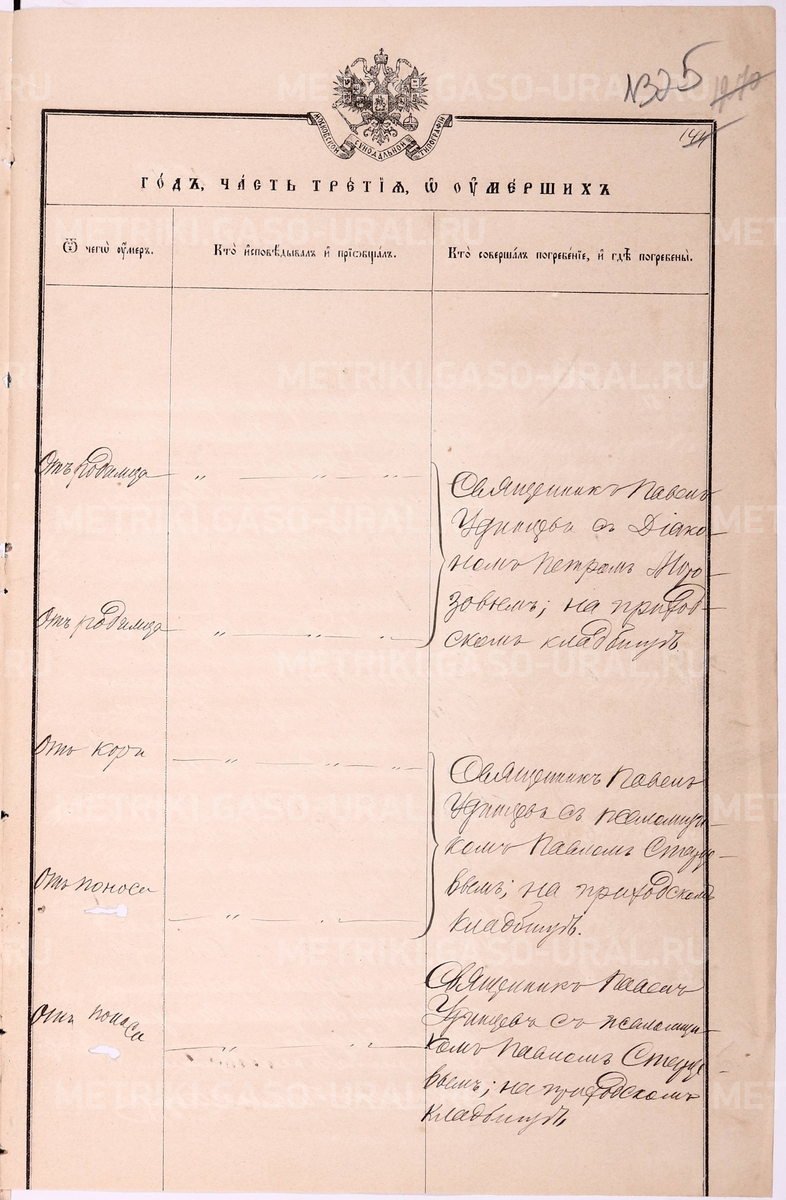 №325
144
МОСКОВСКОЙ СѴНОДАЛЬНОЙ ТИПОГРАФІИ
ГОДЪ, ЧАСТЬ ТРЕТІЯ, Ѿ ОУМЕРШИХЪ
Ѿ чегѡ оумеръ.
Кто исповѣдывалъ и пріобщалъ.
Кто совершалъ погребеніе, и гдѣ погребены.
Отъ родимца
Священникъ Павелъ
Удинцевъ съ Діако-
номъ Петромъ
на приход-
скомъ кладбищѣ
Отъ родимца
Отъ кори
Священникъ Павелъ
Удинцевъ съ псаломщи-
комъ Павломъ
на приходскомъ
кладбищѣ.
Отъ поноса
Отъ поноса
Священникъ Павелъ
Удинцевъ съ псаломщи-
комъ Павломъ
на приходскомъ
кладбищѣ
METRIKI.GASO-URAL.RU